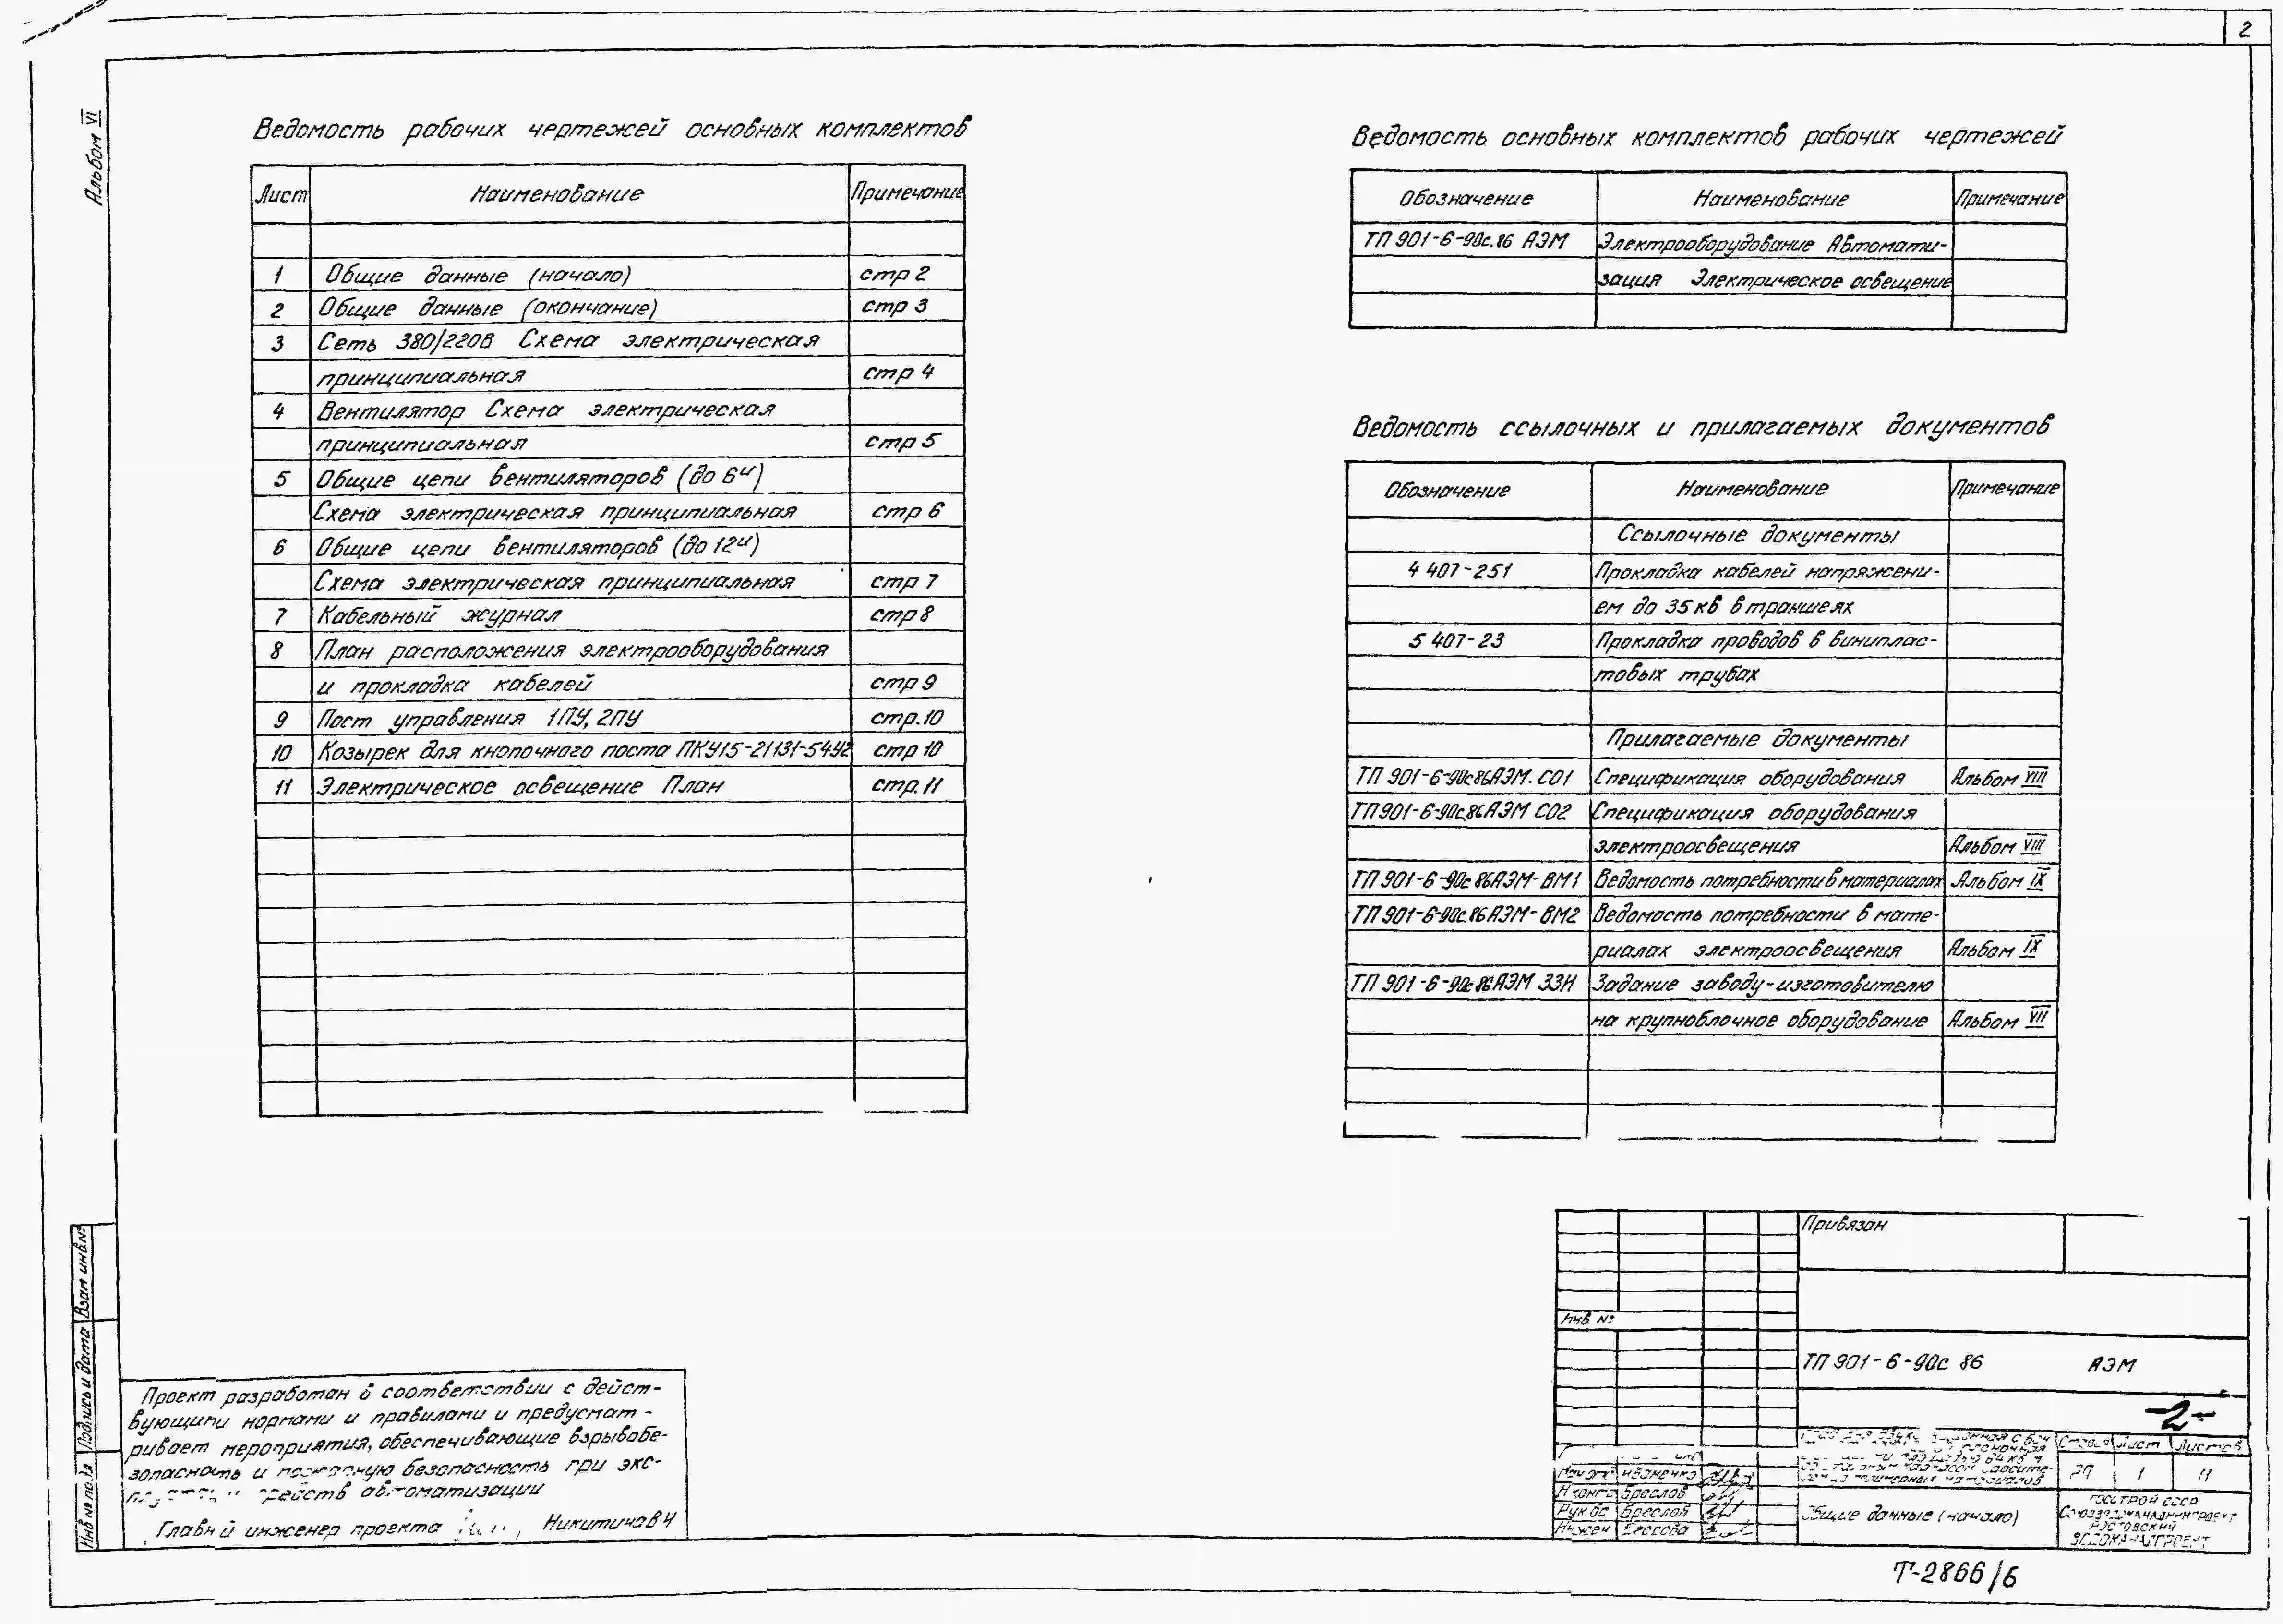 2
Альбом VI
Ведомость рабочих чертежей основных комплектов
Лист Наименование Примечание
1 Общие данные (начало) стр 2
2 Общие данные (окончание) стр 3
3 Сеть 380/220В Схема электрическая
принципиальная стр 4
4 Вентилятор Схема электрическая
принципиальная стр 5
5 Общие цепи вентиляторов (до 6и)
Схема электрическая принципиальная стр 6
6 Общие цепи вентиляторов (до 12и)
Схема электрическая принципиальная стр 7
7 Кабельный журнал стр 8
8 План расположения электрооборудования
и прокладка кабелей стр 9
9 Пост управления 1ПУ, 2ПУ стр. 10
10 Козырек для кнопочного поста ПКУ15-21131-54У2 стр 10
11 Электрическое освещение План стр. 11
Ведомость основных комплектов рабочих чертежей
Обозначение Наименование Примечание
ТП 901-6-90с.86 АЭМ Электрооборудование Автомати-
зация Электрическое освещение
Ведомость ссылочных и прилагаемых документов
Обозначение Наименование Примечание
Ссылочные документы
4 407-251 Прокладка кабелей напряжени-
ем до 35 кв в траншеях
5 407-23 Прокладка проводов в виниплас-
товых трубах
Прилагаемые документы
ТП 901-6-90с86АЭМ. СО1 Спецификация оборудования Альбом VIII
ТП901-6-90с.86АЭМ СО2 Спецификация оборудования
электроосвещения Альбом VIII
ТП 901-6-90с 86АЭМ-ВМ1 Ведомость потребности в материалах Альбом IX
ТП 901-6-90с.86АЭМ-ВМ2 Ведомость потребности в мате-
риалах электроосвещения Альбом IX
ТП 901-6-90с 86АЭМ ЗЗИ Задание заводу-изготовителю
на крупноблочное оборудование Альбом VII
Взам инв.№
Подпись и дата
Инв № подл
Проект разработан в соответствии с дейст-
вующими нормами и правилами и предусмат-
ривает мероприятия, обеспечивающие взрывобе-
зопасность и пожарную безопасность при экс-
средств автоматизации
Главный инженер проекта Никитина В И
Привязан
Инв №
ТП 901-6-90с 86 АЭМ
-2-
Стадия Лист Листов
РП 1 11
Иваненко
Н контр Бреслов
Рук бс Бреслов
Инжен Егорова
Общие данные (начало)
Госстрой СССР
Союзводоканалниипроект
Ростовский
Водоканалпроект
Т-2866/6